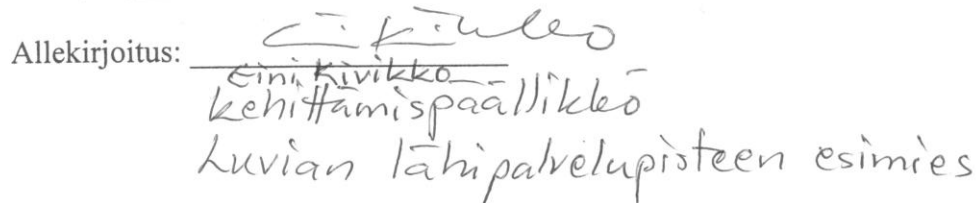 Allekirjoitus:
Eini Kivikko
kehittämispäällikkö
Luvian lähipalvelupisteen esimies